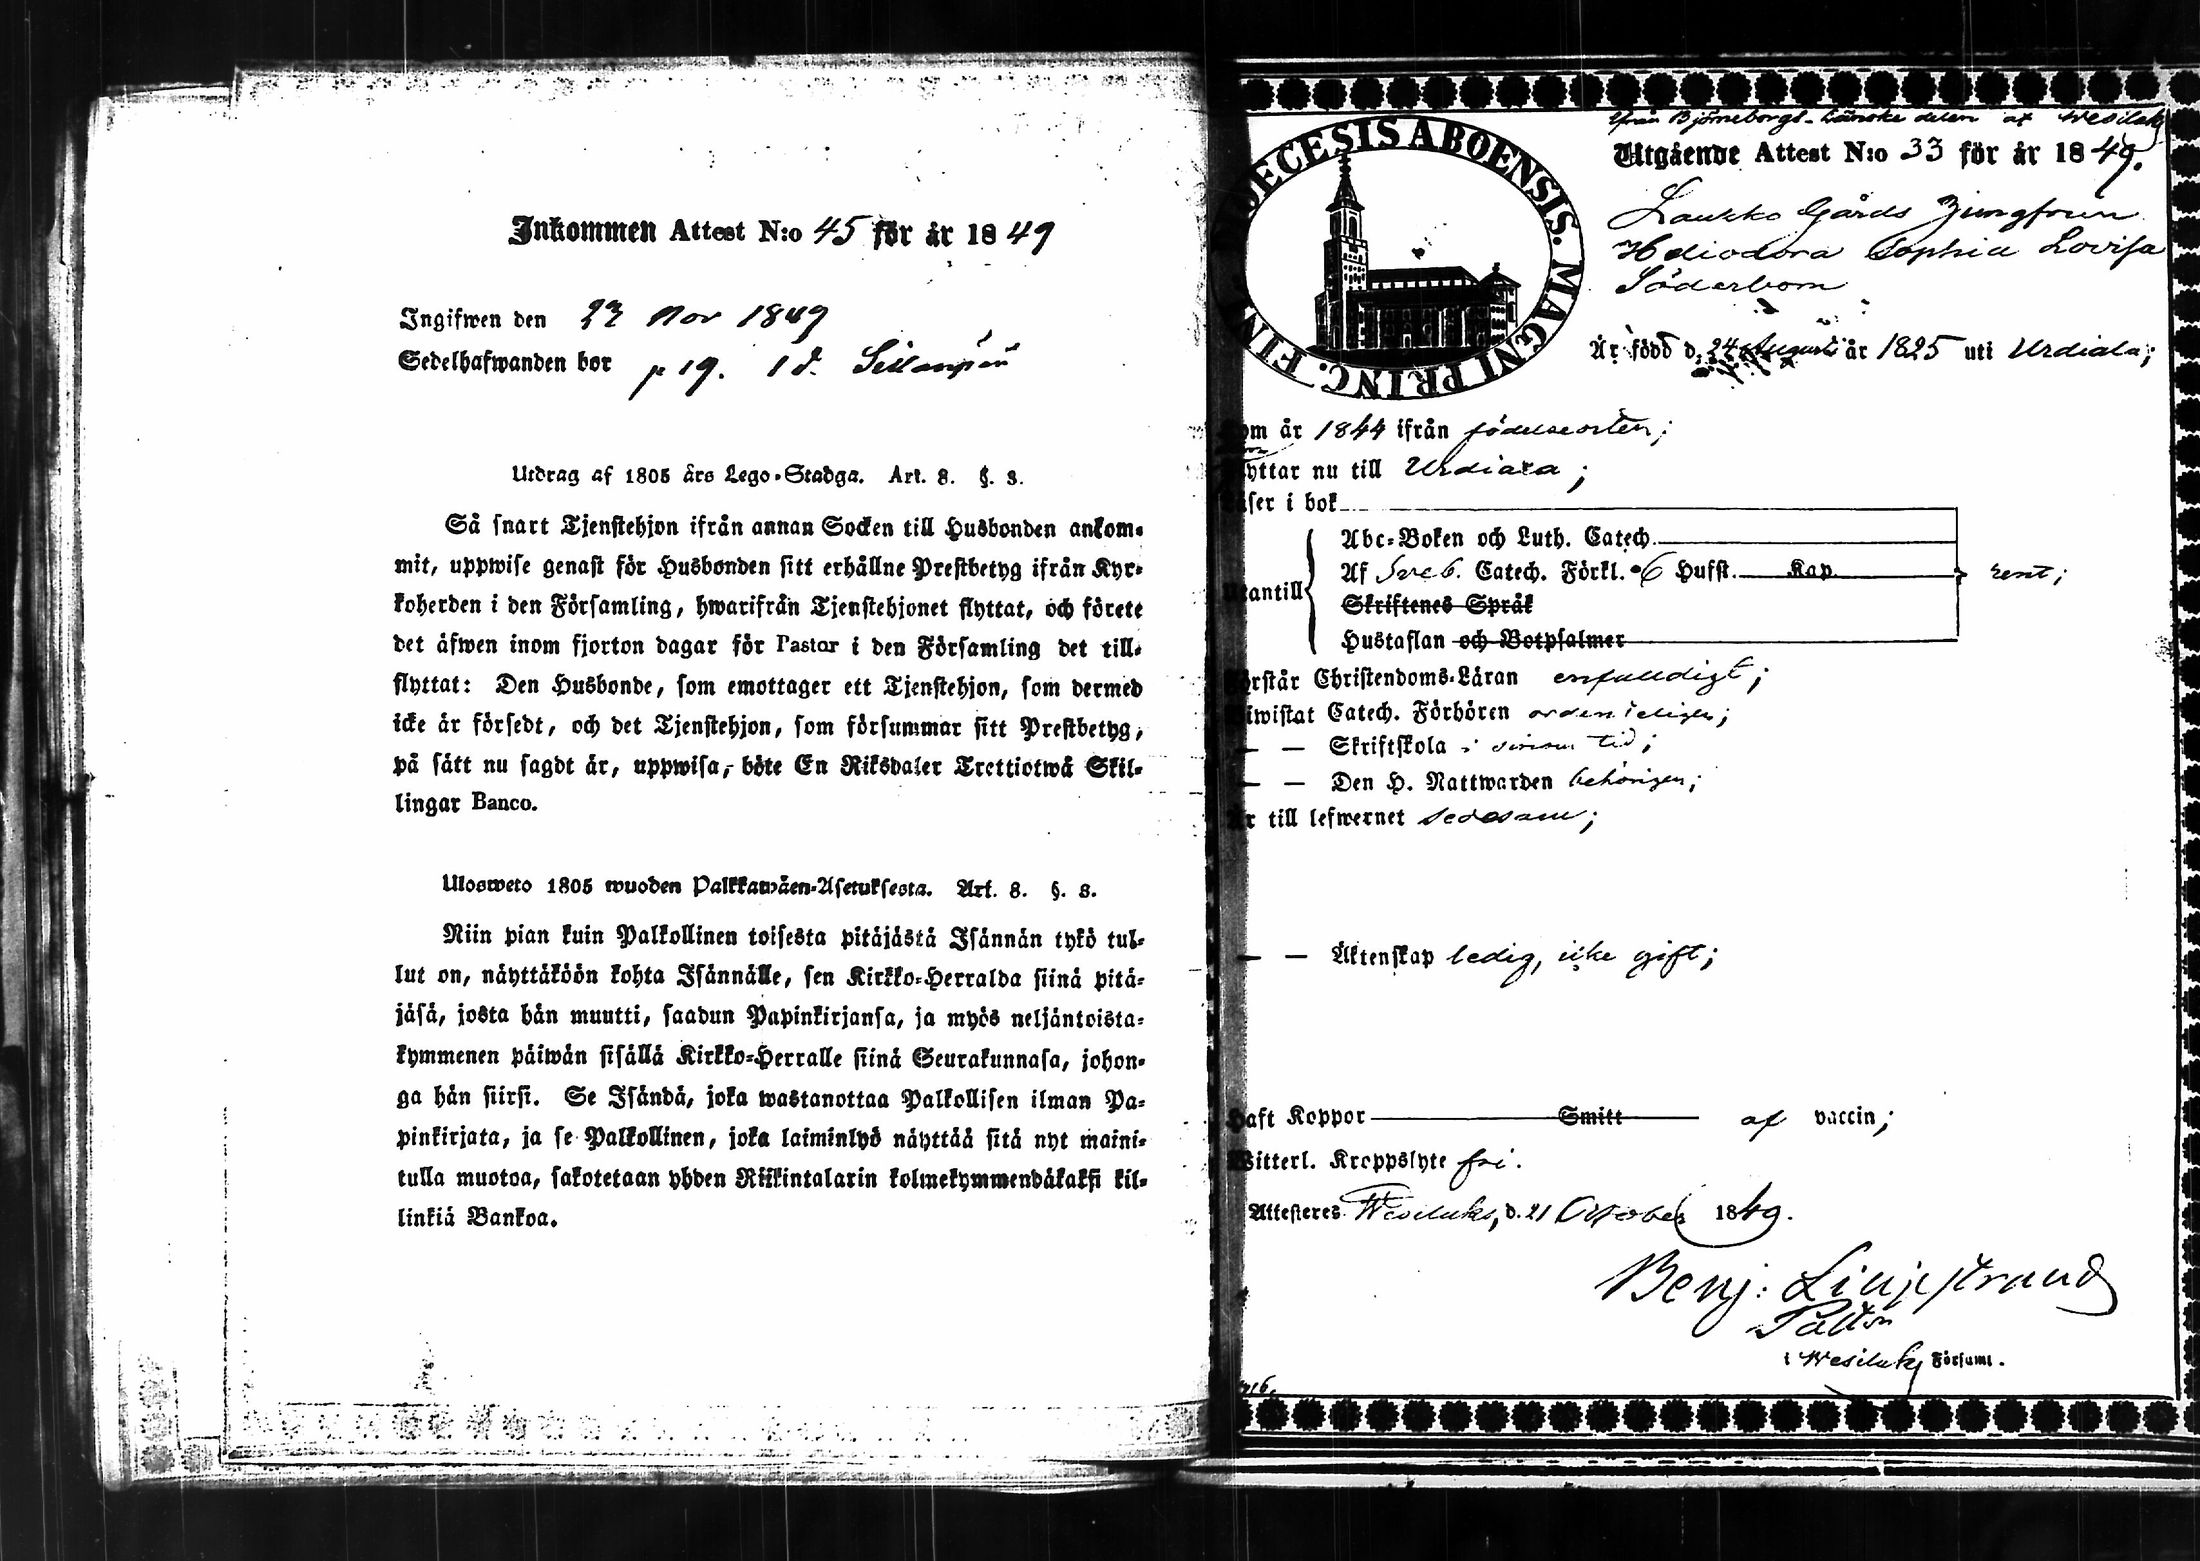 Inkommen Attest N:o 45 för år 1849
Ingifwen den 23 Nov 1849
Sedelhafwanden bor p 19. 1 d. Sillanpää
Utdrag af 1805 års Lego-Stadga. Art. 8. §. 3.
Så snart Tjenstehjon ifrån annan Socken till Husbonden ankom-
mit, uppwise genast för Husbonden sitt erhållne Prestbetyg ifrån Kyr-
koherden i den Församling, hwarifrån Tjenstehjonet flyttat, och förete
det äfwen inom fjorton dagar för Pastor i den Församling det till-
flyttat: Den Husbonde, som emottager ett Tjenstehjon, som dermed
icke är försedt, och det Tjenstehjon, som försummar sitt Prestbetyg,
på sätt nu sagdt är, uppwisa, böte En Riksdaler Trettiotwå Skil-
lingar Banco.
Ulosweto 1805 wuoden Palkkawäen-Asetuksesta. Art. 8. §. 3.
Niin pian kuin Palkollinen toisesta pitäjästä Isännän tykö tul-
lut on, näyttäköön kohta Isännälle, sen Kirkko-Herralda siinä pitä-
jäsä, josta hän muutti, saadun Papinkirjansa, ja myös neljäntoista-
kymmenen päiwän sisällä Kirkko-Herralle siinä Seurakunnasa, johon-
ga hän siirsi. Se Isändä, joka wastanottaa Palkollisen ilman Pa-
pinkirjata, ja se Palkollinen, joka laiminlyö näyttää sitä nyt maini-
tulla muotoa, sakotetaan yhden Riikintalarin kolmekymmendäkaksi kil-
linkiä Bankoa.
DIOECESIS ABOENSIS. MAGNI PRINC. FIN
ifrån Björneborgs-Länske delen af Wesilaks
Utgående Attest N:o 33 för år 1849.
Laukko Gårds Jungfrun
Heliodora Sophia Lovisa
Söderbom
Är född d. 24 Augusti år 1825 uti Urdiala;
Kom år 1844 ifrån födelseorten;
flyttar nu till Urdiala;
Läser i bok
Abc-Boken och Luth. Catech.
Af Sveb. Catech. Förkl. 6 Hufst. Kap.
Utantill rent;
Skriftenes Språk
Hustaflan och Botpsalmer
Förstår Christendoms-Läran enfaldigt;
Biwistat Catech. Förhören ordenteligen;
— — Skriftskola i sinom tid;
— — Den H. Nattwarden behörigen;
Är till lefwernet sedesam;
— — Äktenskap ledig, icke gift;
Haft Koppor Smitt af vaccin;
Witterl. Kroppslyte fri.
Attesteres Wesilaks, d. 21 October 1849.
Benj: Liljestrand
Pastor
i Wesilaks Församl.